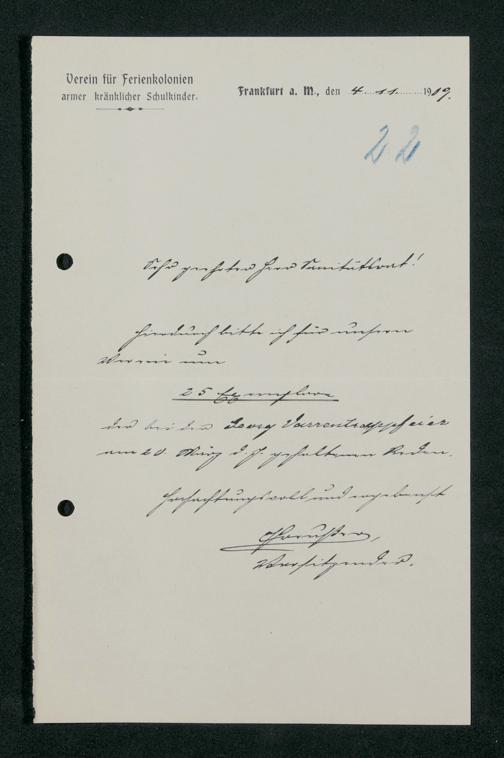 Verein für Ferienkolonien
armer kränklicher Schulkinder.
Frankfurt a. M., den 4. 11. 1909.
22
Sehr geehrter Herr Sanitätsrat!
Hierdurch bitte ich für unseren
Verein um
25 Exemplare
der bei der Georg Varrentrappfeier
am 20 März d. J. gehaltenen Reden.
Hochachtungsvoll und ergebenst
Vorsitzender.